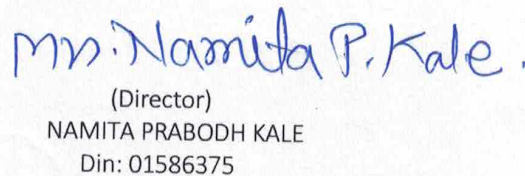 Mrs. Namita P. Kale.
(Director)
NAMITA PRABODH KALE
Din: 01586375